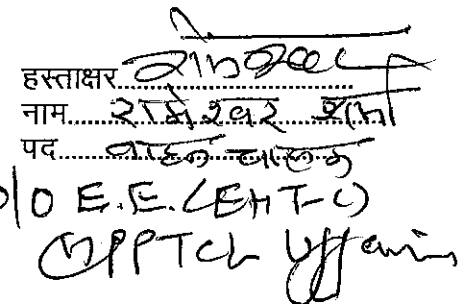 हस्ताक्षर
नाम रामेश्वर शर्मा
पद वाहन चालक
O/O E.E. (EHT-C)
MPPTCL Ujjain